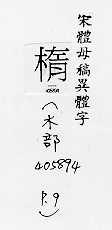 宋體母稿異體字
楕
405894
(木部
405894
P.9)